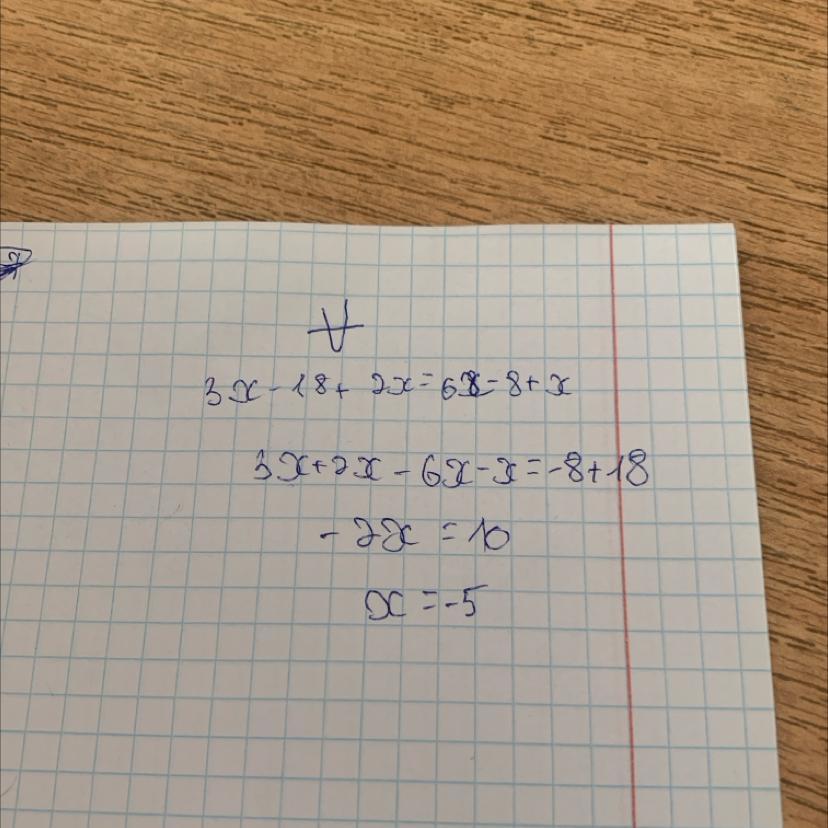 3x - 18 + 2x = 6x - 8 + x
3x + 2x - 6x - x = -8 + 18
- 2x = 10
x = -5